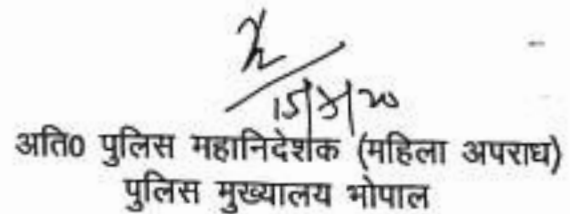 अति0 पुलिस महानिदेशक (महिला अपराध)
पुलिस मुख्यालय भोपाल